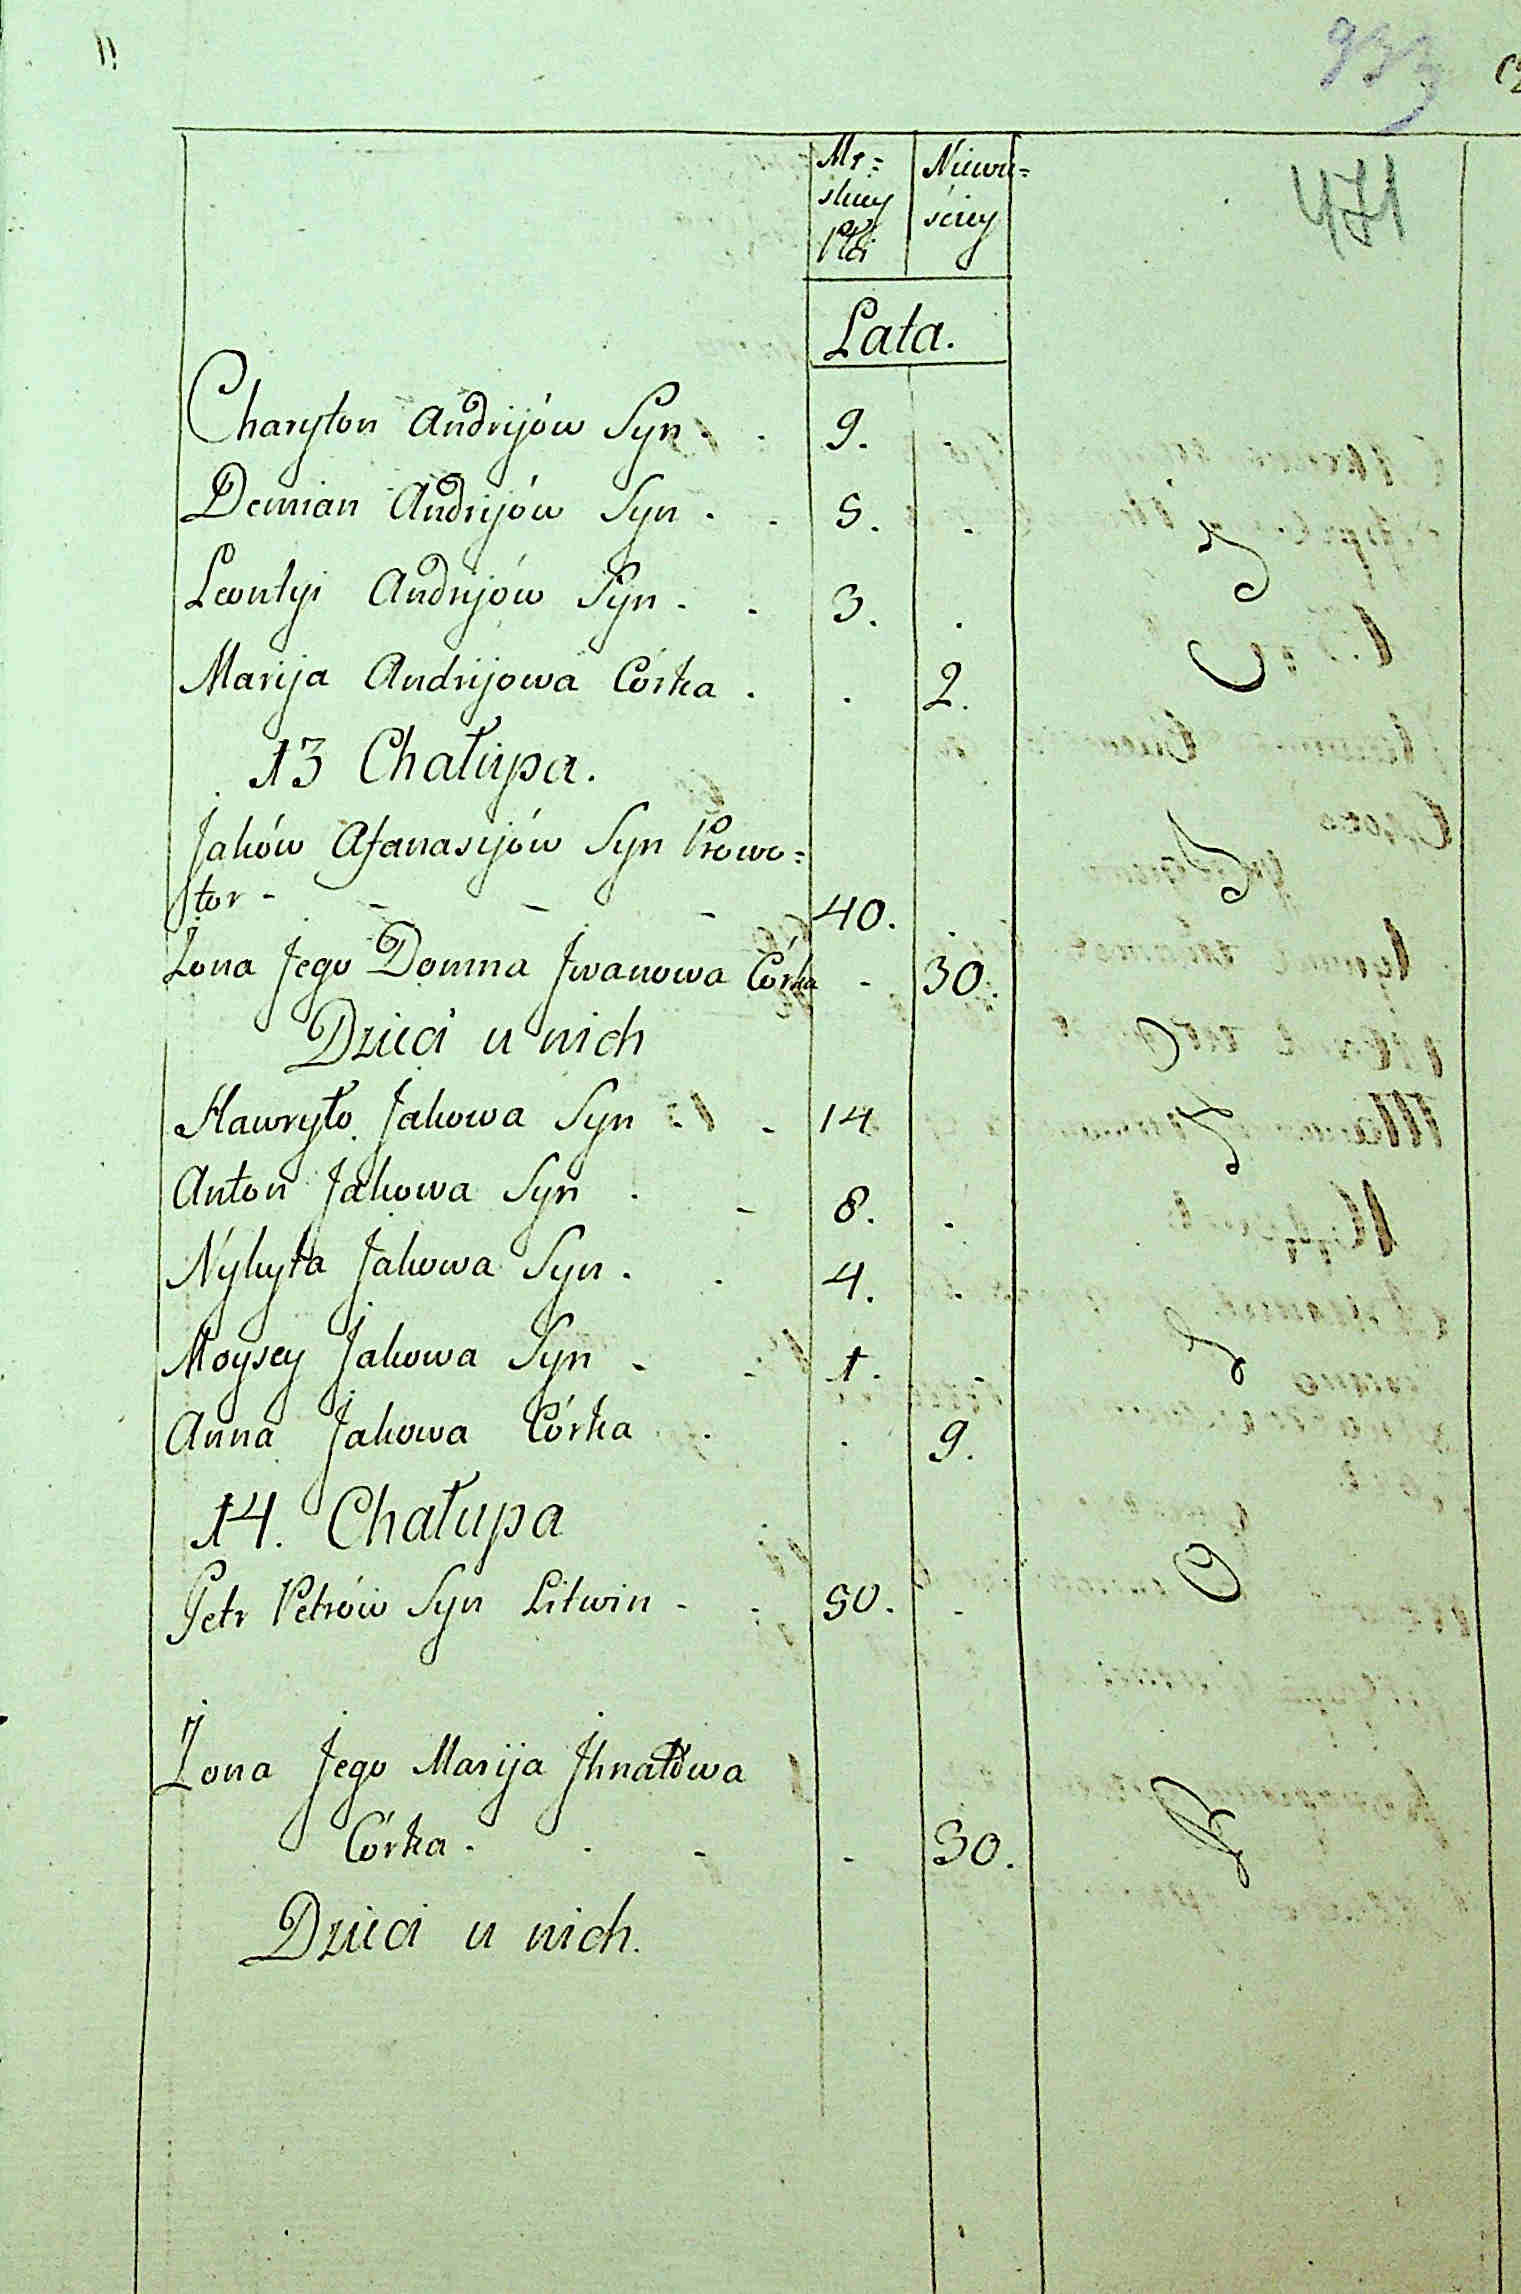 11
933
471
Mę=
skiey
Płci
Niewie=
ściey
Lata.
Charyton Andrijów Syn - . 9.
Demian Andrijów Syn . . 5. .
Leontyi Andrijów Syn . . 3. .
Marija Andrijowa Córka . . 2.
13 Chałupa.
Jaków Afanasijów Syn Prowo=
tor - - - - 40. .
Żona Jego Domna Jwanowa Córka - 30.
Dzieci u nich
Hawryło Jakowa Syn - - 14
Anton Jakowa Syn . - 8. .
Nykyta Jakowa Syn . . 4. .
Moysey Jakowa Syn - - 1. -
Anna Jakowa Córka . . 9.
14. Chałupa
Petr Petrów Syn Litwin - . 50. -
Żona Jego Marija Jhnatowa
Córka . . - - 30.
Dzieci u nich.